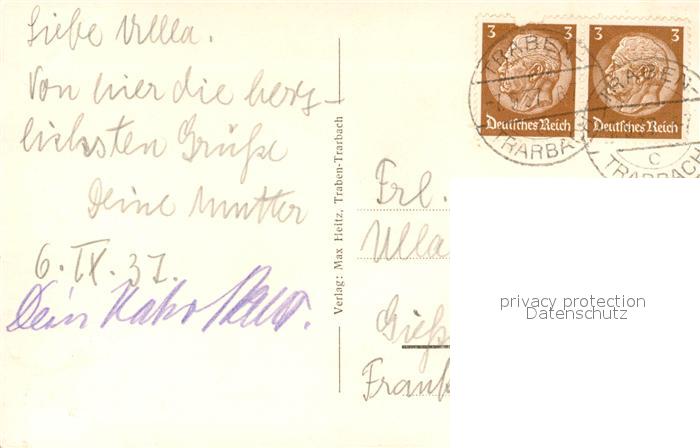 Liebe Ulla.
Von hier die herz-
lichsten Grüße
Deine Mutter
6. IX. 37.
Dein
Verlag: Max Heitz, Traben-Trarbach
3 3
Deutsches Reich Deutsches Reich
TRABEN-
TRARBACH
TRABEN-
c
TRARBACH
Frl.
Ulla
Gieß
Frank
privacy protection
Datenschutz